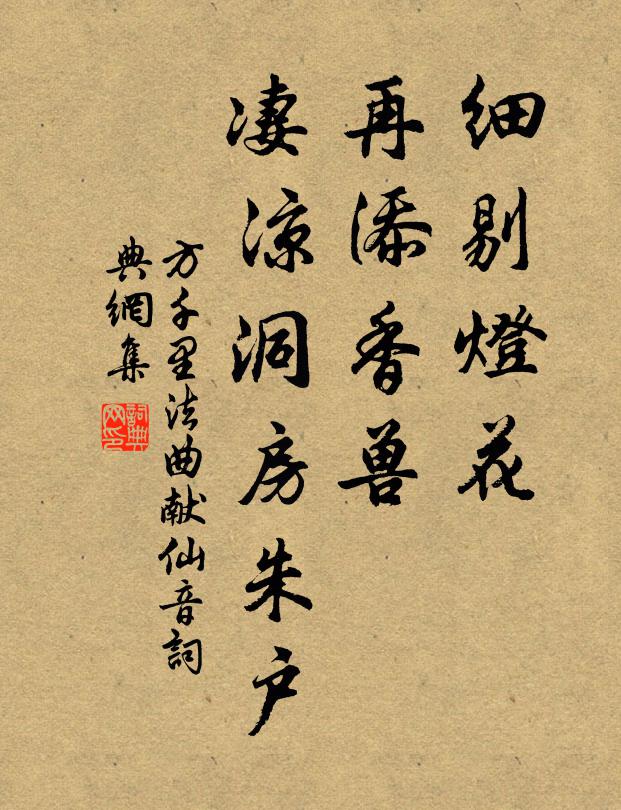 细剔燈花
再添香兽
凄凉洞房朱户
方千里法曲献仙音詞
典網集
詞典网印